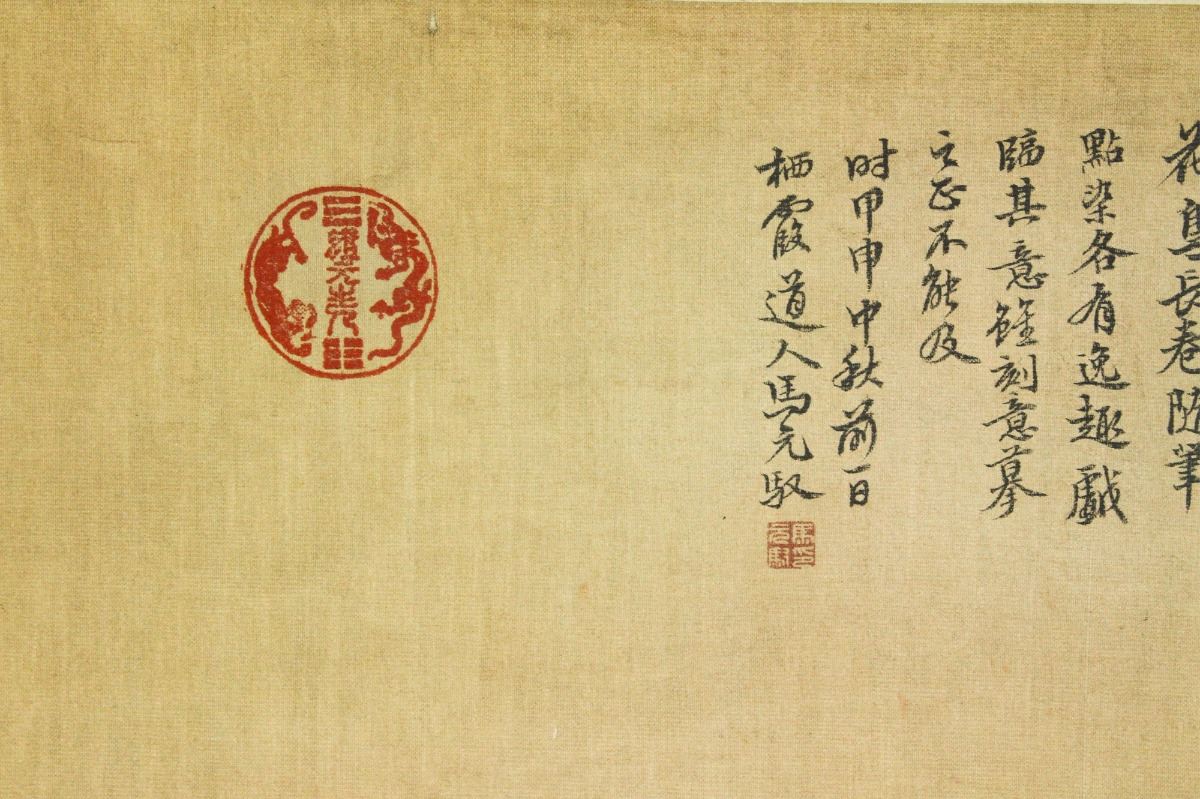 花鳥長卷随筆
點染各有逸趣戯
臨其意雖刻意摹
之正不能及
时甲申中秋前一日
栖霞道人馬元馭
馬元馭印